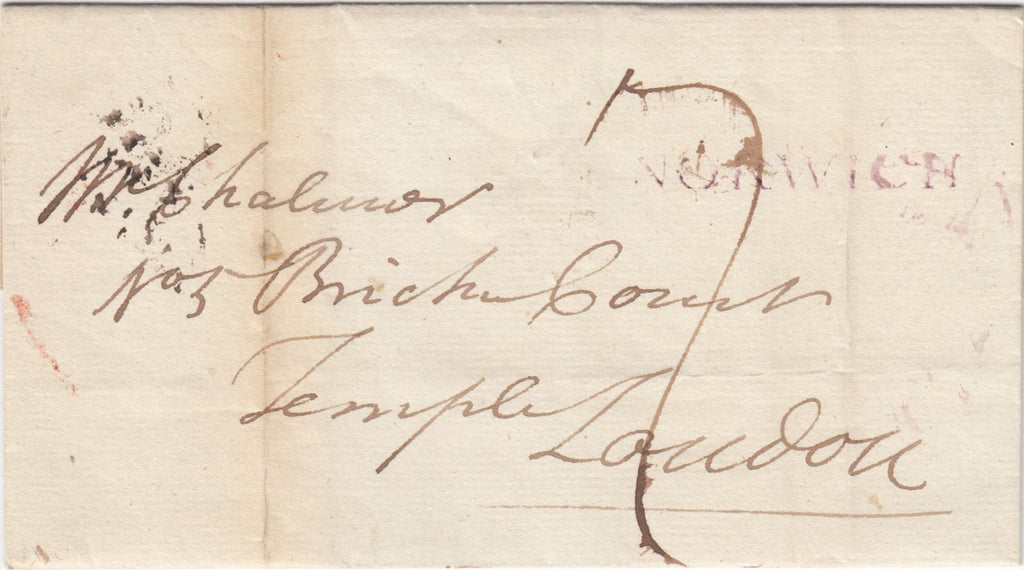 NORWICH
7
Mr. Chalmer
No. 5 Brick Court
Temple
London